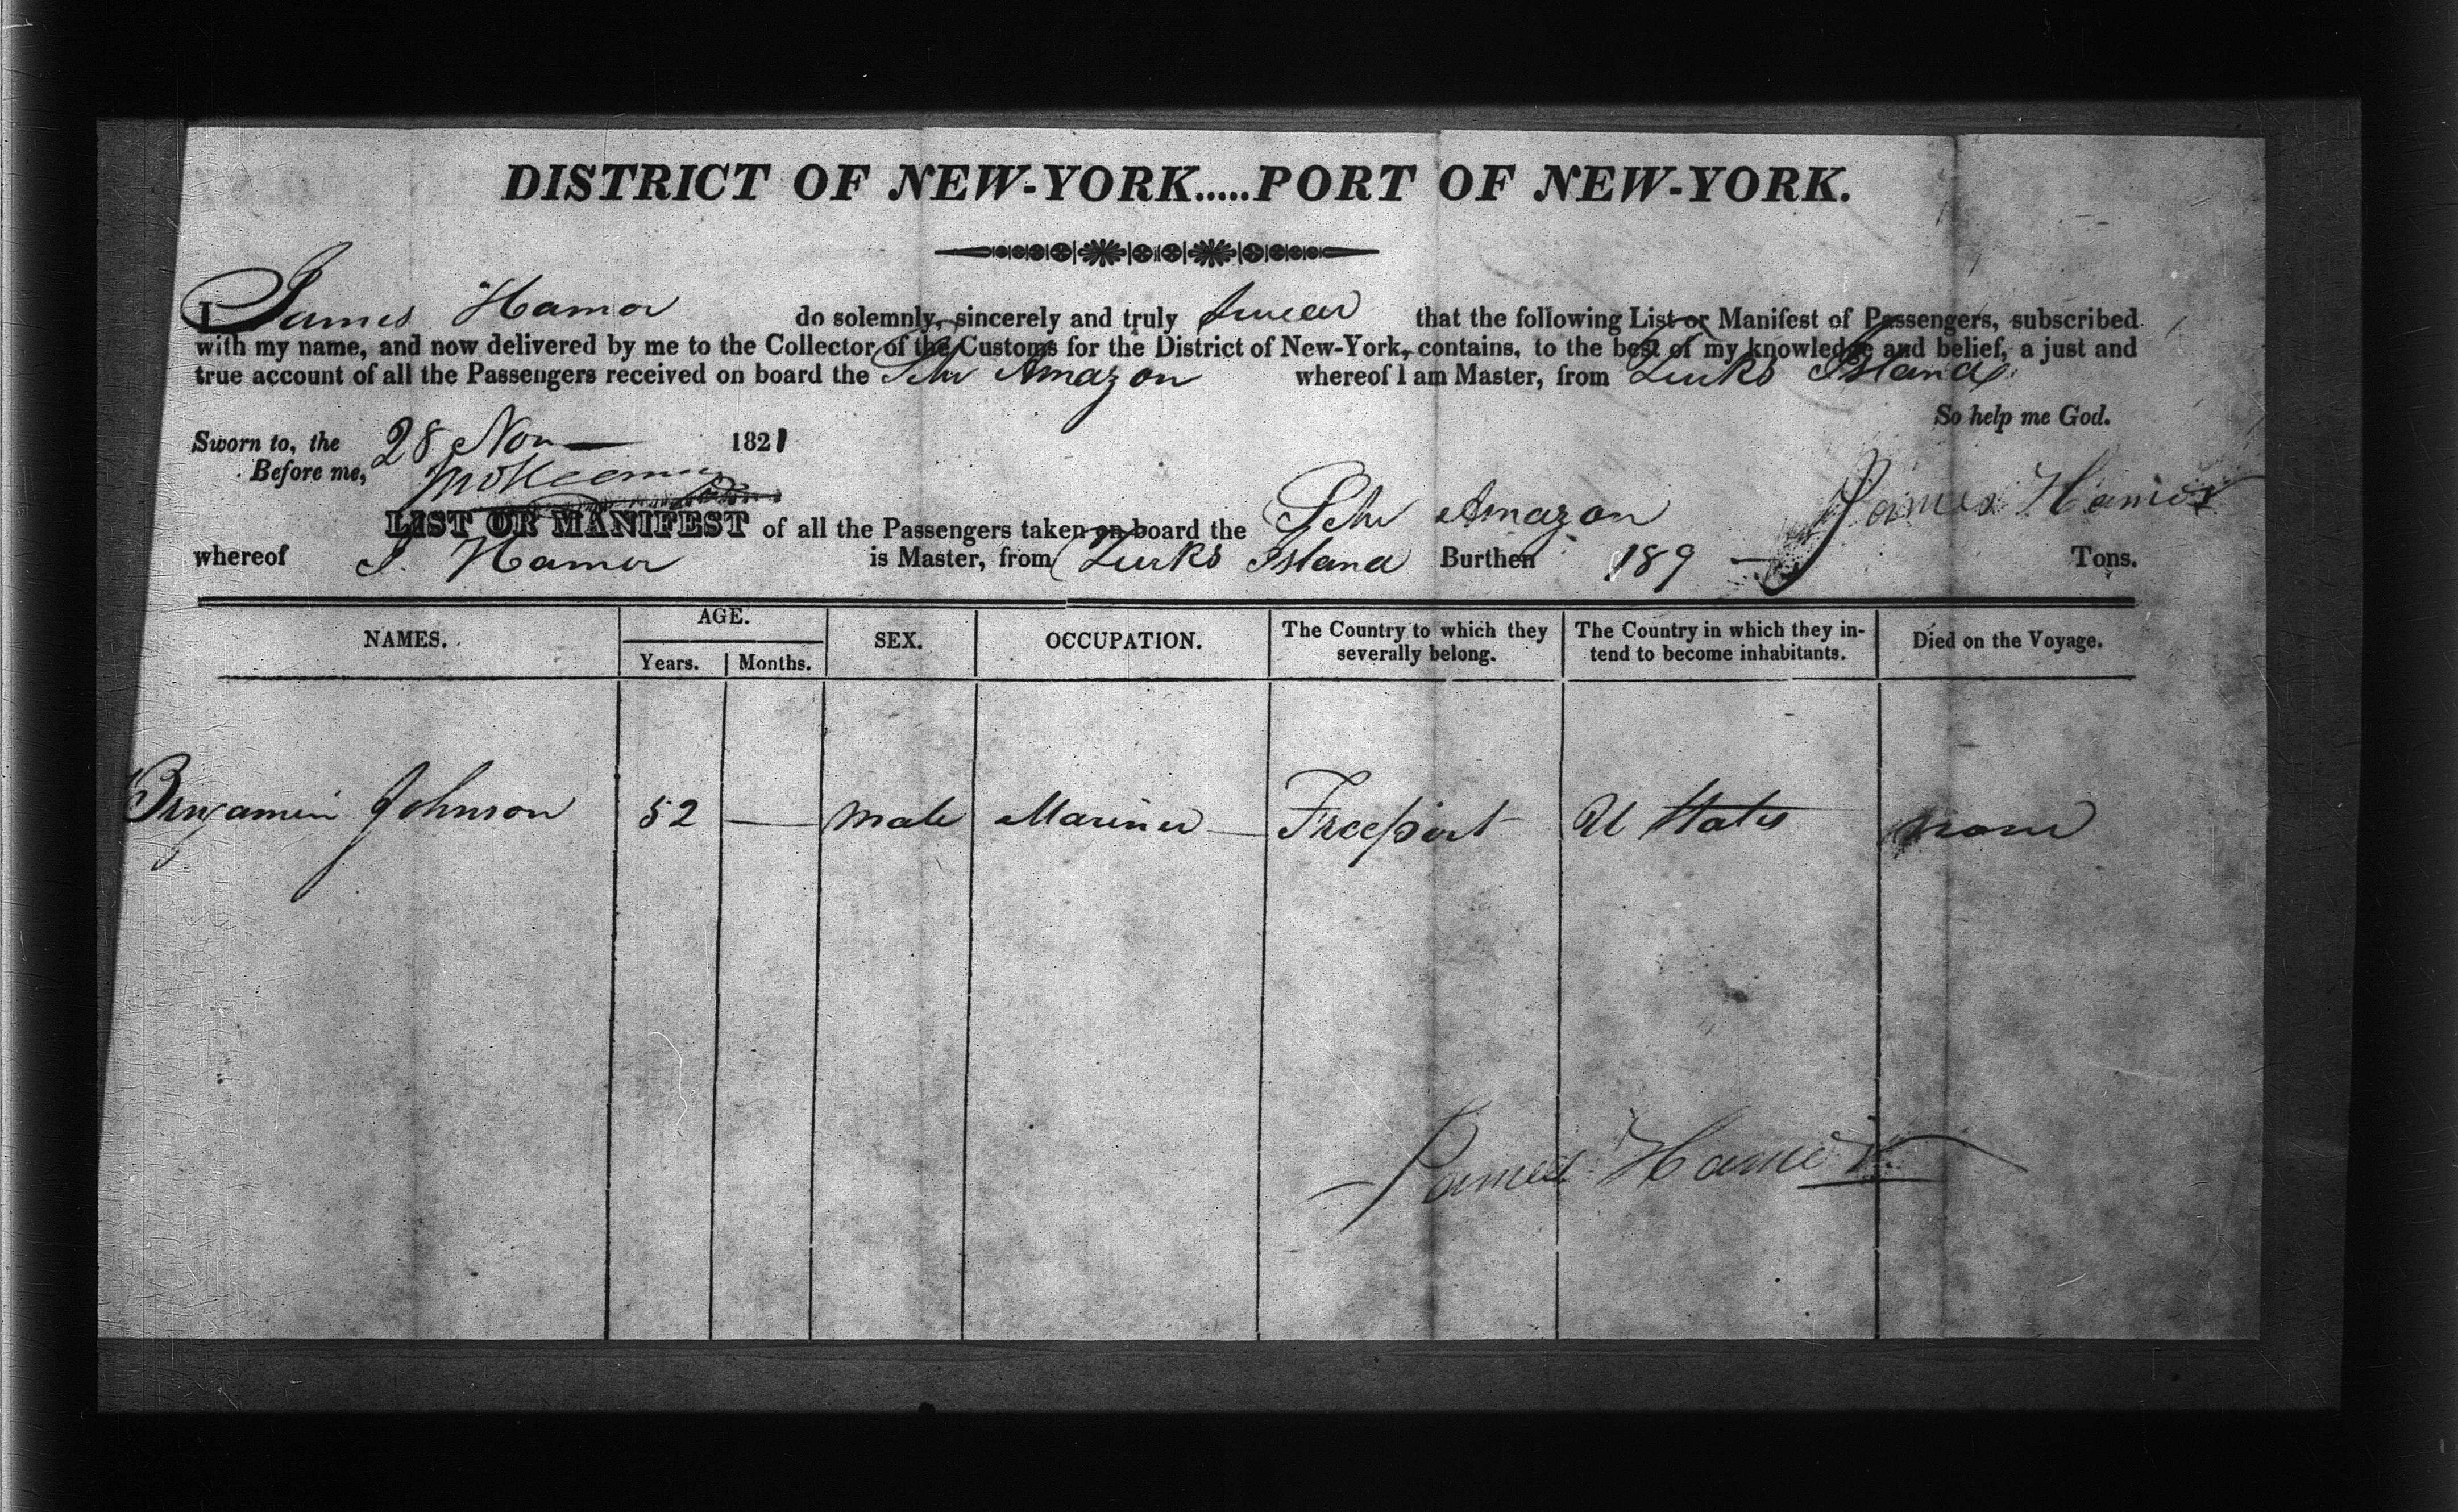 DISTRICT OF NEW-YORK.....PORT OF NEW-YORK.
I James Hamor do solemnly, sincerely and truly Swear that the following List or Manifest of Passengers, subscribed
with my name, and now delivered by me to the Collector of the Customs for the District of New-York, contains, to the best of my knowledge and belief, a just and
true account of all the Passengers received on board the Schr Amazon whereof I am Master, from Turks Island
So help me God.
Sworn to, the 28 Nov 1821
Before me,
James Hamor
LIST OR MANIFEST of all the Passengers taken on board the Schr Amazon
whereof J. Hamor is Master, from Turks Island Burthen 189 Tons.
NAMES. AGE. SEX. OCCUPATION. The Country to which they severally belong. The Country in which they in-tend to become inhabitants. Died on the Voyage.
Years. Months.
Benjamin Johnson 52 — male Mariner Freeport U States none
James Hamor